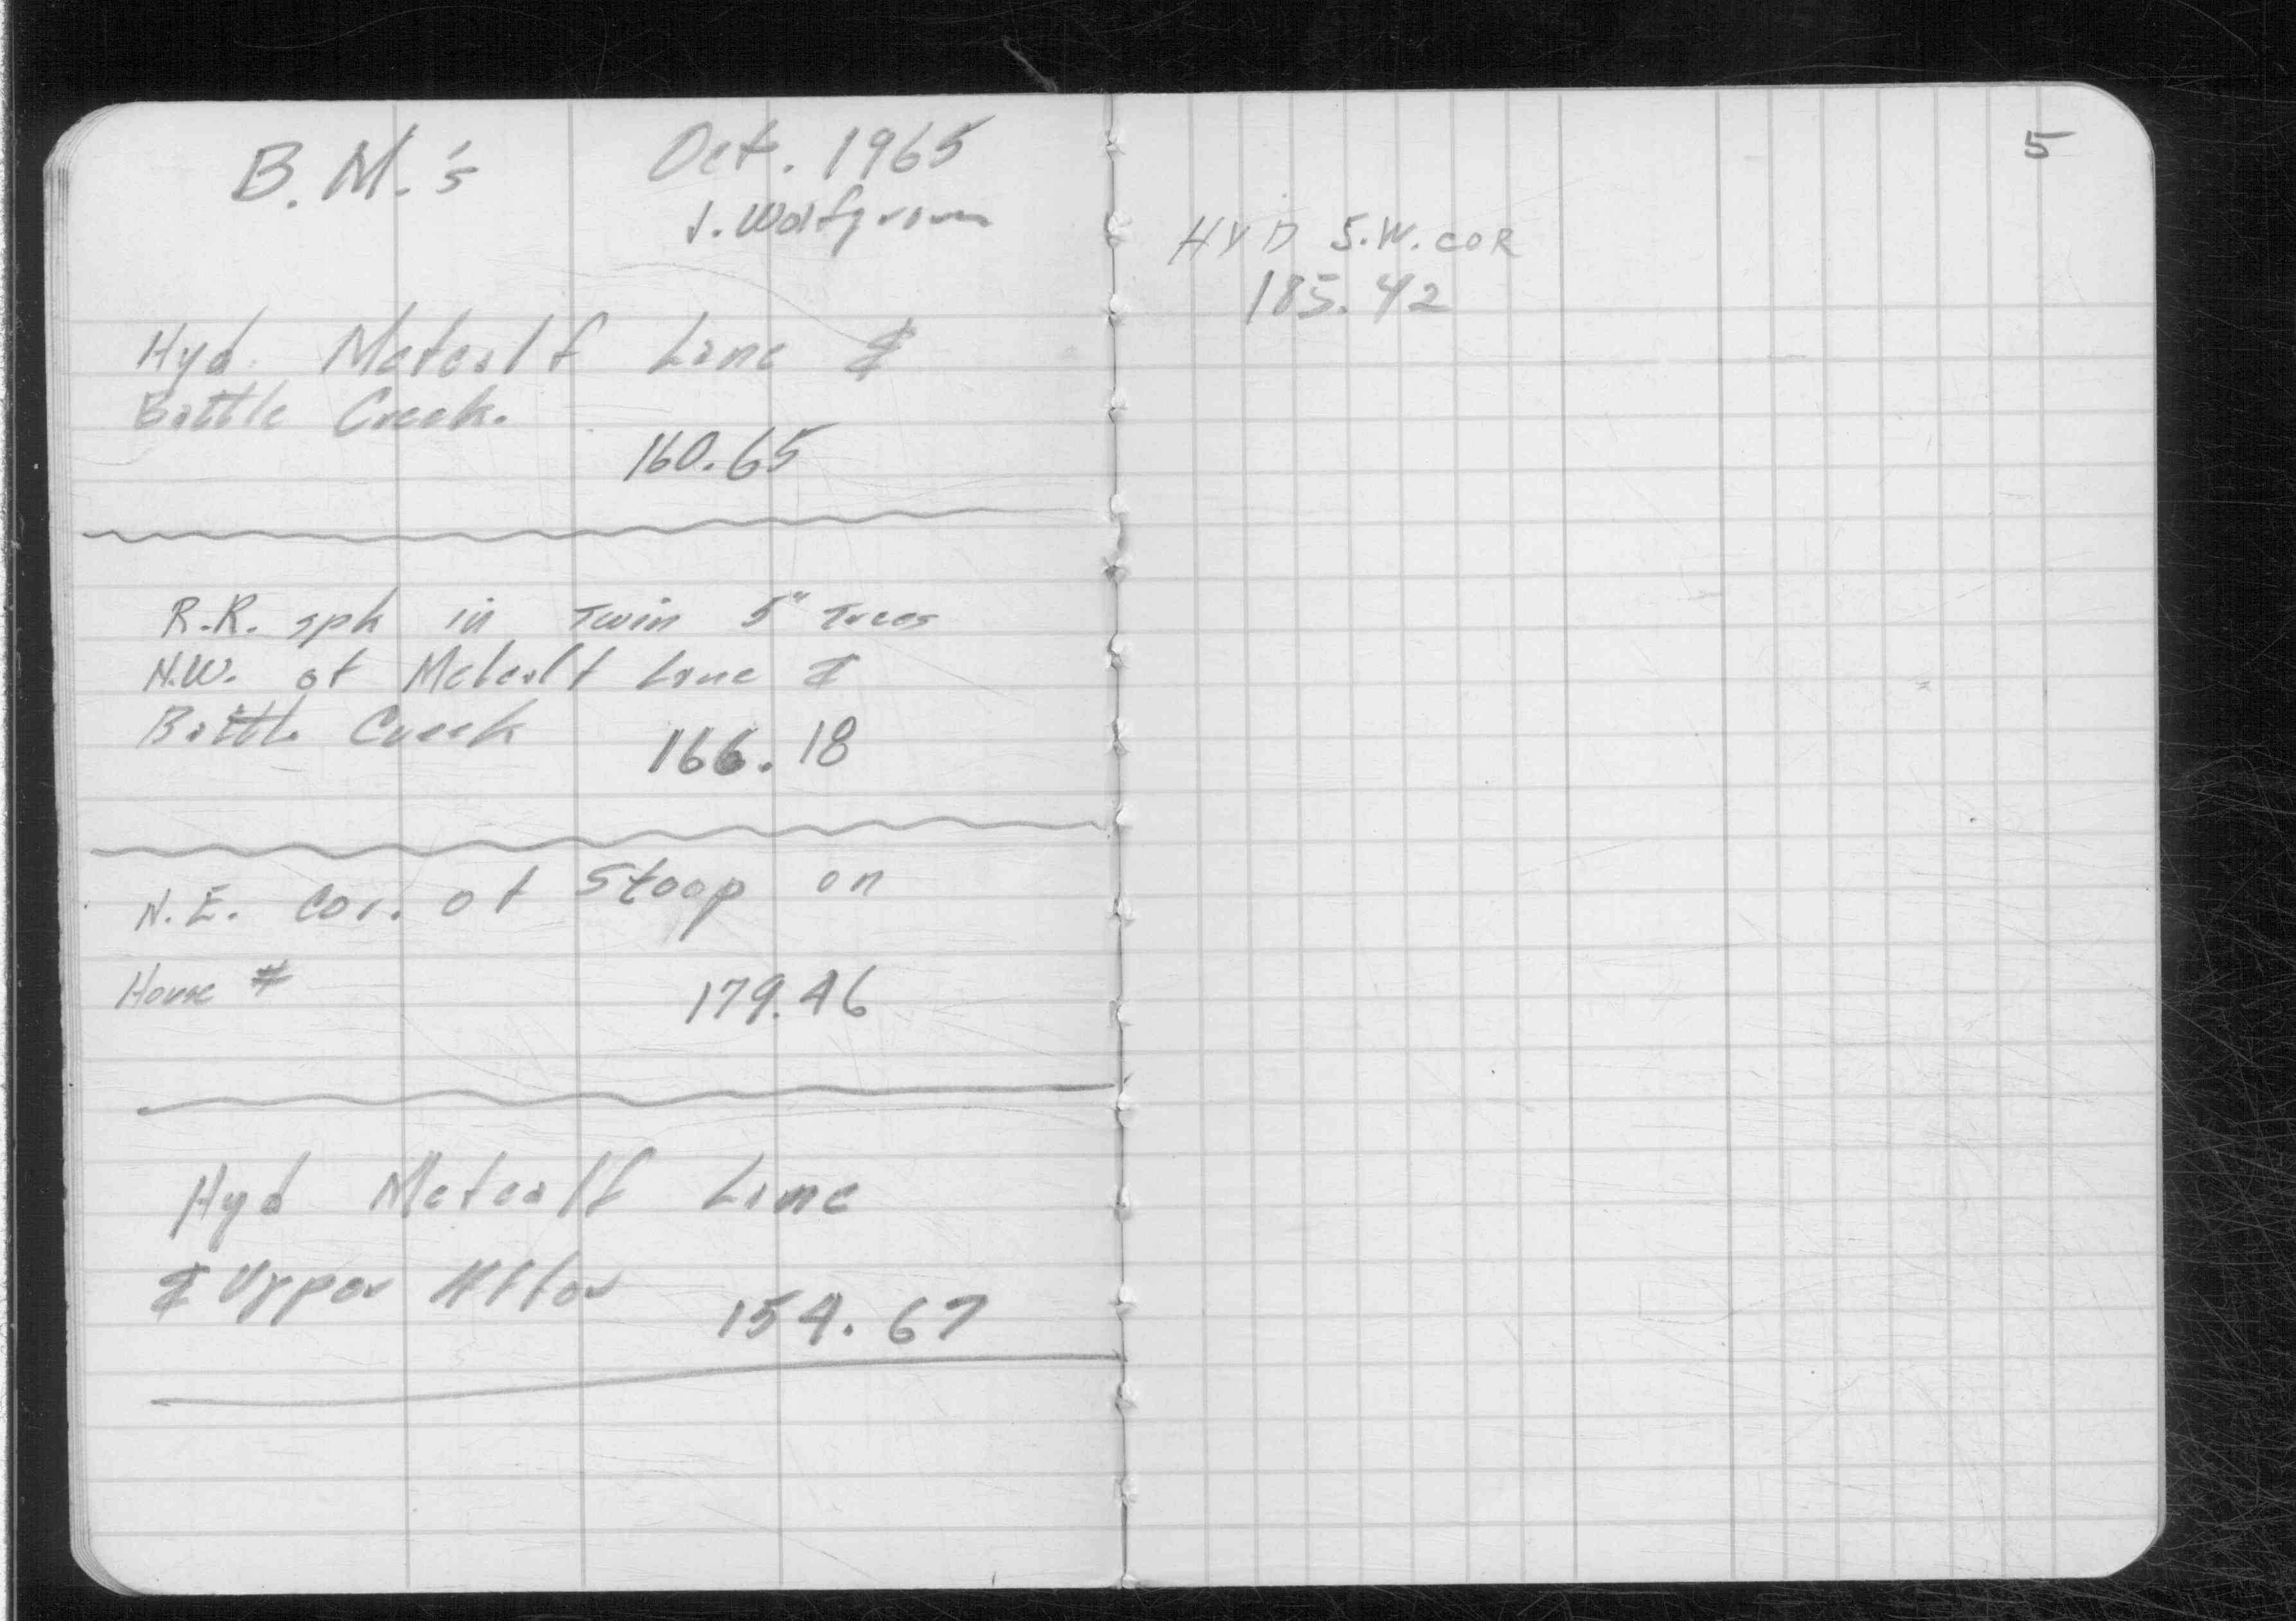 B.M.'s Oct. 1965
J. Wolfgram
Hyd. Metcalf Lane &
Battle Creek.
160.65
R.R. spk in Twin 5" Trees
N.W. of Metcalf Lane &
Battle Creek 166.18
N.E. Cor. of Stoop on
House # 179.46
Hyd Metcalf Lane
& Upper Aftor 154.67
5
HYD S.W. COR
185.42